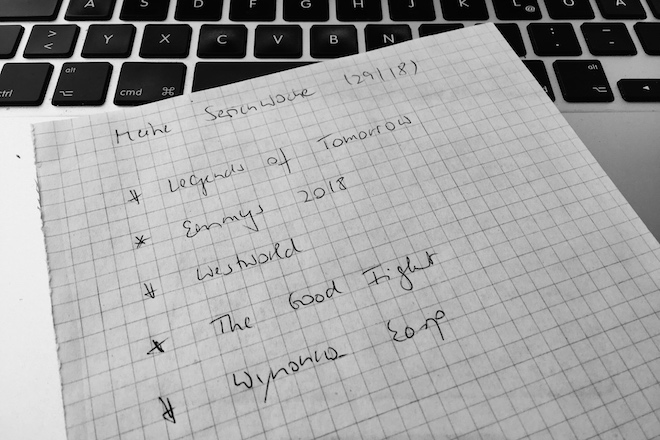 A S D F G H J K L Ö Ä
> < Y X C V B N : ; _ -
ctrl alt ⌥ cmd ⌘ alt ⌥ ◀
Meine Serienwoche (29/18)
# Legends of Tomorrow
* Emmys 2018
# Westworld
* The Good Fight
# Wynonna Earp